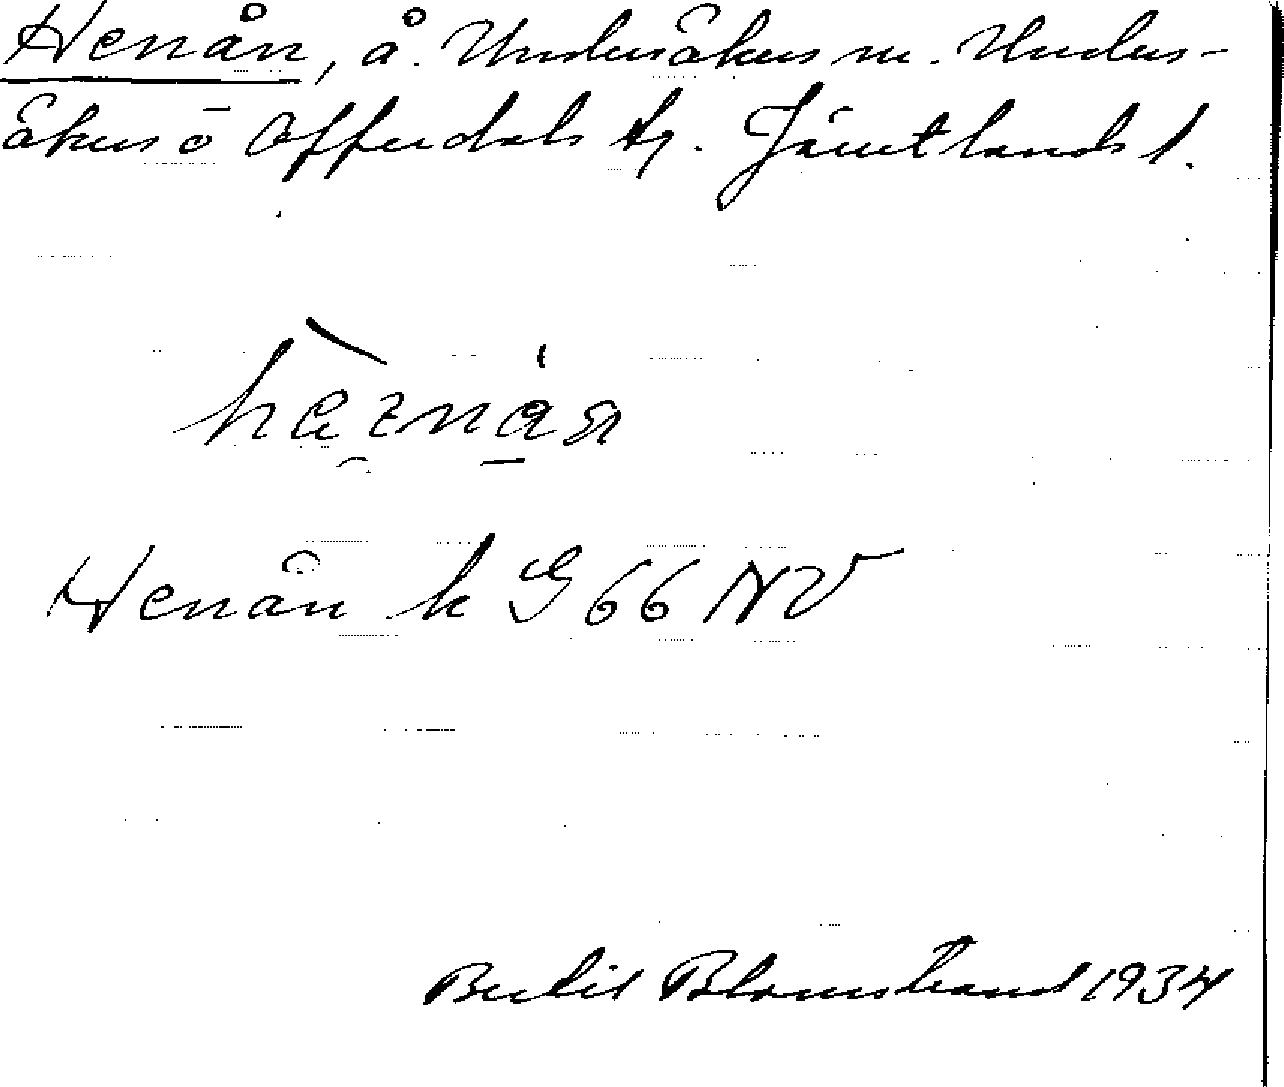 Henån, å. Undersåkers sn. Unders-
åkers o Offerdals tg. Jämtlands l.
Henån k G 66 NV
Bertil Blomstrand 1934